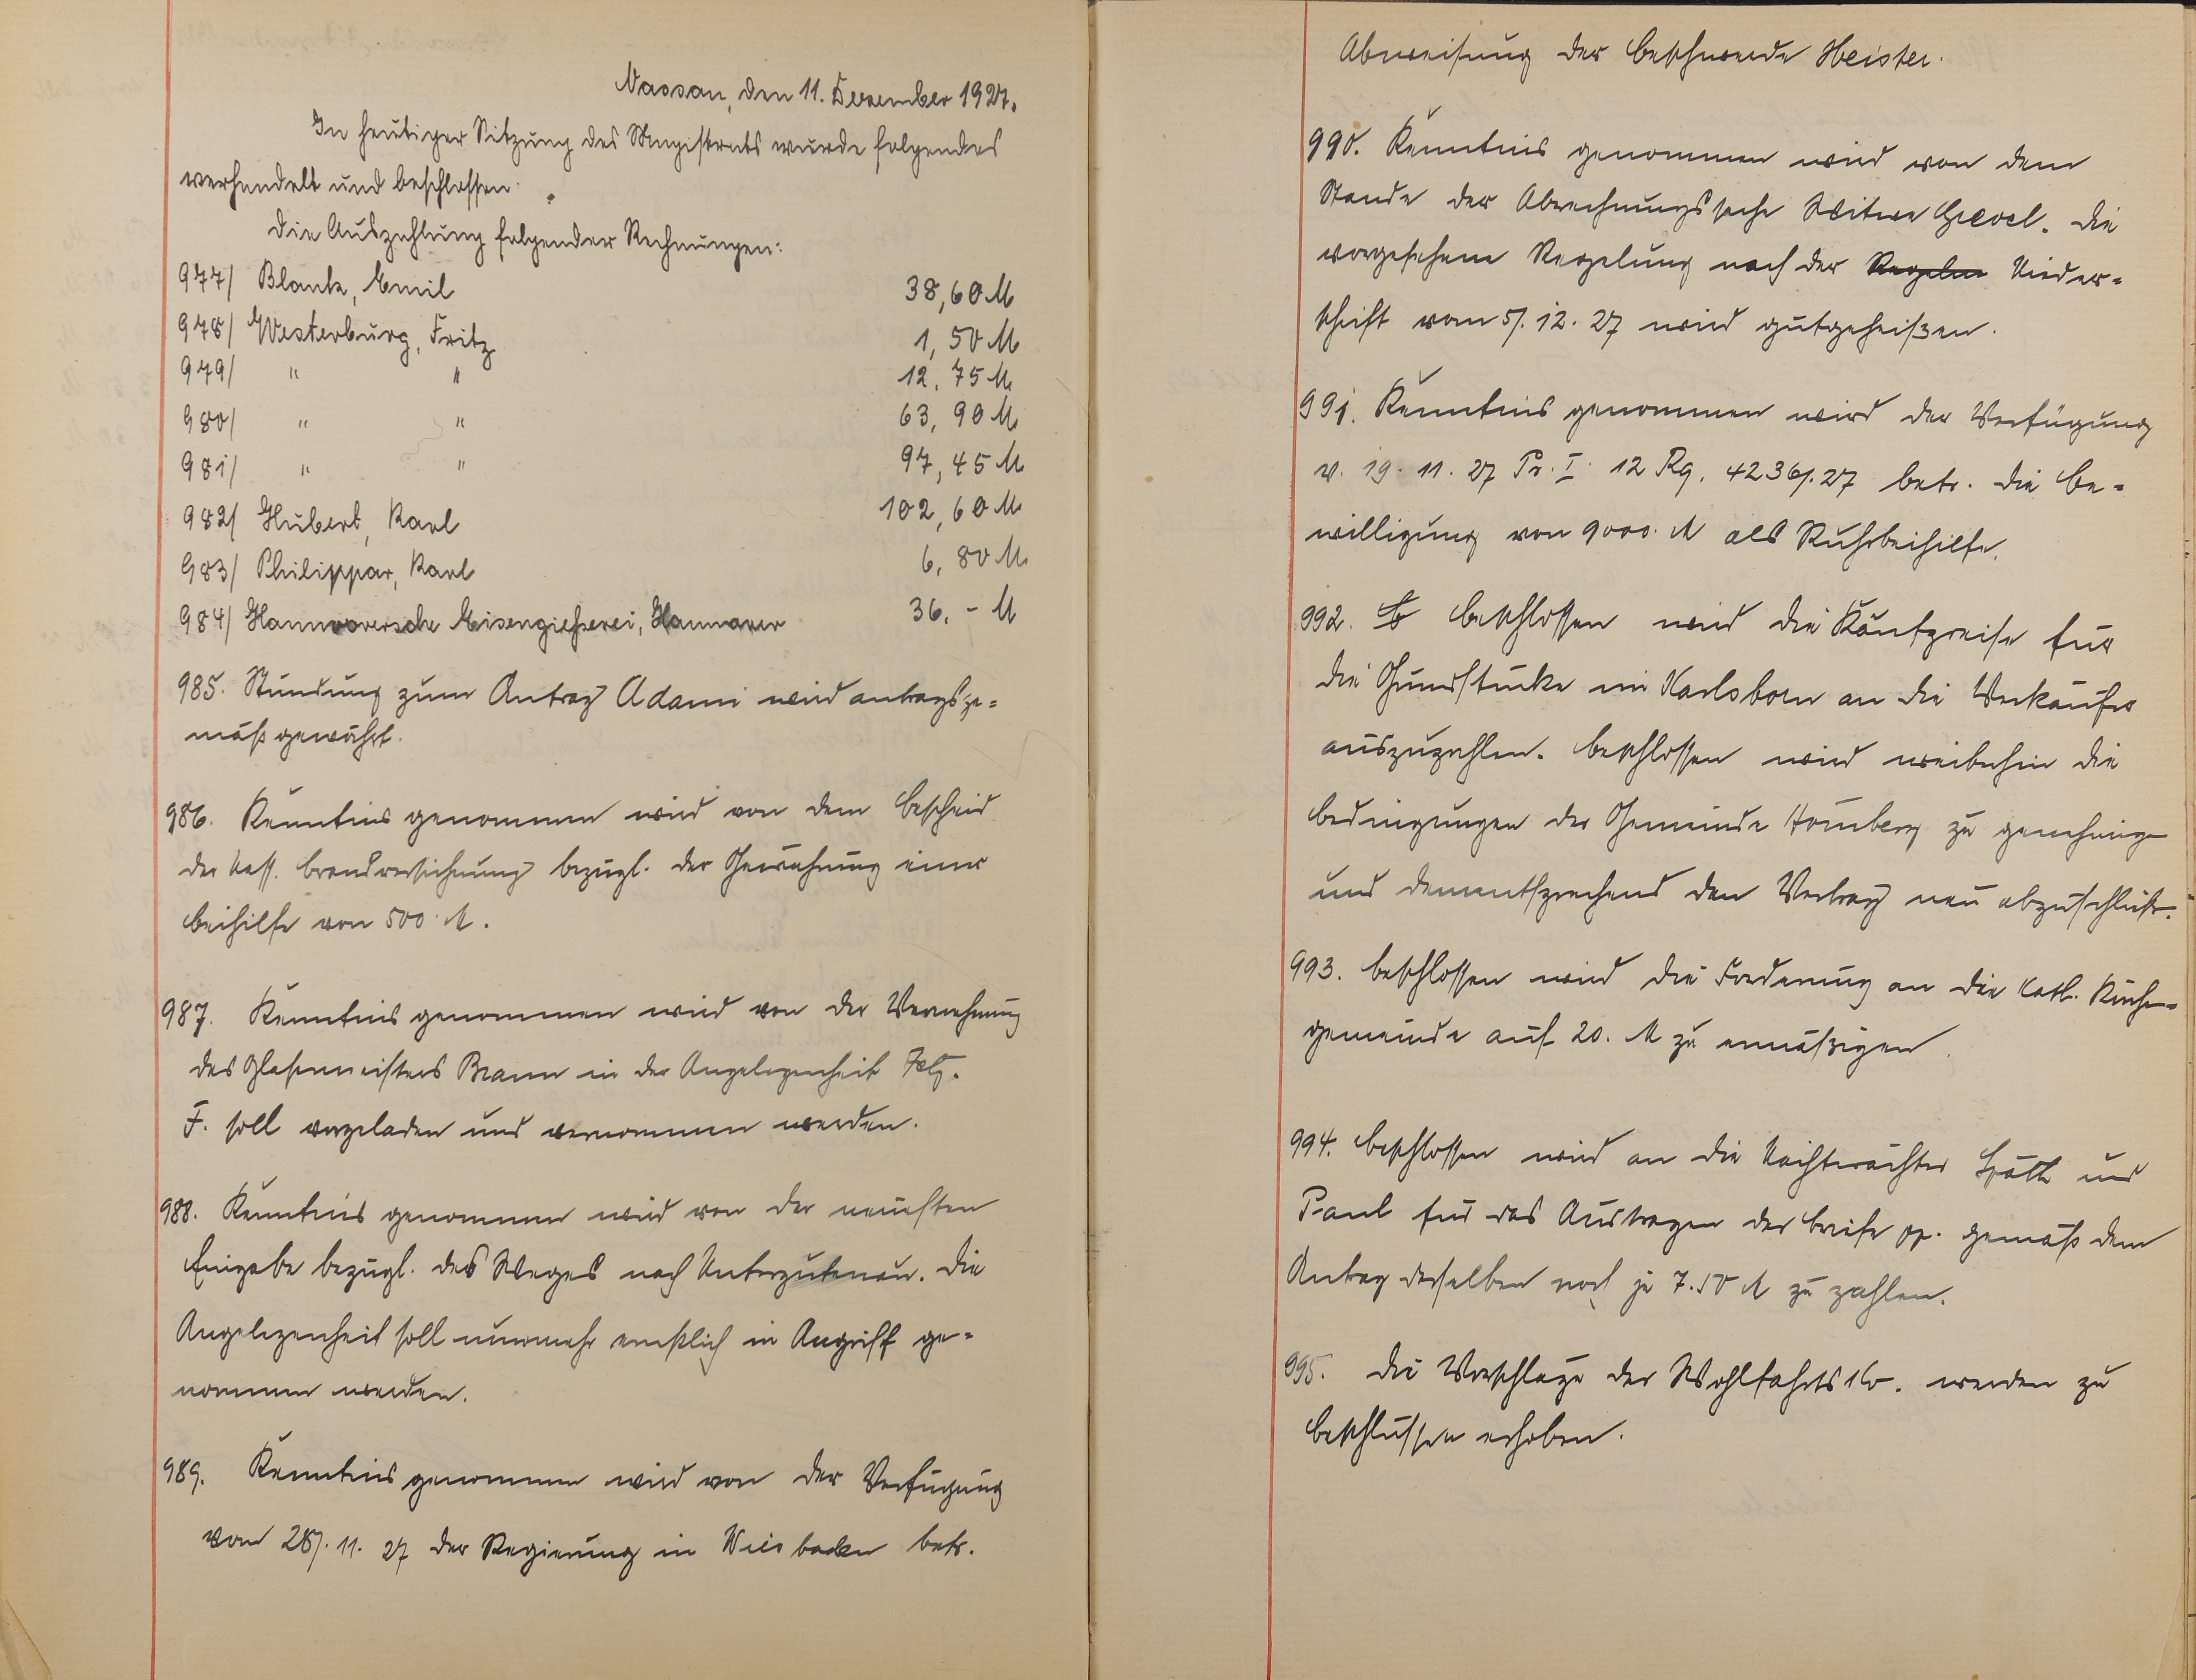 Nassau, den 11. Dezember 1927.
In heutiger Sitzung des Magistrats wurde folgendes
verhandelt und beschlossen:
Die Auszahlung folgender Rechnungen:
977/ Blank, Emil 38,60 M
978/ Westerburg, Fritz 1,50 M
979/ " " 12,75 M
980/ " " 63,90 M
981/ " " 97,45 M
982/ Hubert, Karl 102,60 M
983/ Philippar, Karl 6,80 M
984/ Hannoversche Eisengießerei, Hannover 36.- M
985. Stundung zum Antrag Adami wird antragsge=
mäß gewährt.
986. Kenntnis genommen wird von dem Bescheid
der Nass. Brandversicherung bezügl. der Gewährung einer
Beihilfe von 500 M.
987. Kenntnis genommen wird von der Vernehmung
des Glasermeisters Braun in der Angelegenheit
F. soll vorgeladen und vernommen werden.
988. Kenntnis genommen wird von der neuesten
Eingabe bezügl. des Weges nach Unterzutenau. Die
Angelegenheit soll nunmehr ernstlich in Angriff ge=
nommen werden.
989. Kenntnis genommen wird von der Verfügung
vom 28/. 11. 27 der Regierung in Wiesbaden betr.
Abweisung der Beschwerde Heister.
990. Kenntnis genommen wird von dem
Stande der Abrechnungssache Witwe. Die
vorgesehene Regelung nach der Regeln Nieder=
schrift vom 5/. 12. 27 wird gutgeheißen.
991. Kenntnis genommen wird der Verfügung
v. 19. 11. 27 Pr. I. 12 Rg. 4236/. 27 betr. die Be=
willigung von 9000. M als Ruhrbeihilfe.
992. Beschlossen wird die Kaufpreise für
die Grundstücke im Karlsborn an die Verkäufer
auszuzahlen. Beschlossen wird weiterhin die
Bedingungen der Gemeinde Homberg zu genehmigen
und dementsprechend den Vertrag neu abzuschließen.
993. Beschlossen wird die Forderung an die kath. Kirchen=
gemeinde auf 20. M zu ermäßigen.
994. Beschlossen wird an die Nachtwächter Späth und
Paul für das Austragen der Briefe pp. gemäß dem
Antrag derselben noch je 7.50 M zu zahlen.
995. Die Vorschläge der Wohlfahrtsko. werden zu
Beschlüssen erhoben.